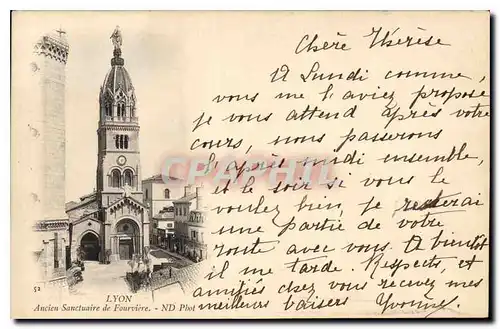 Chère Thérèse
A Lundi comme
vous me l'aviez proposé
je vous attend après votre
cours, nous passerons
l'après midi ensemble,
et le soir si vous le
voulez bien, je resterai
une partie de votre
route avec vous. A bientôt
il me tarde. Respects, et
amitiés chez vous recevez mes
meilleurs baisers Yvonne
CPA
52
LYON
Ancien Sanctuaire de Fourvière. - ND Phot